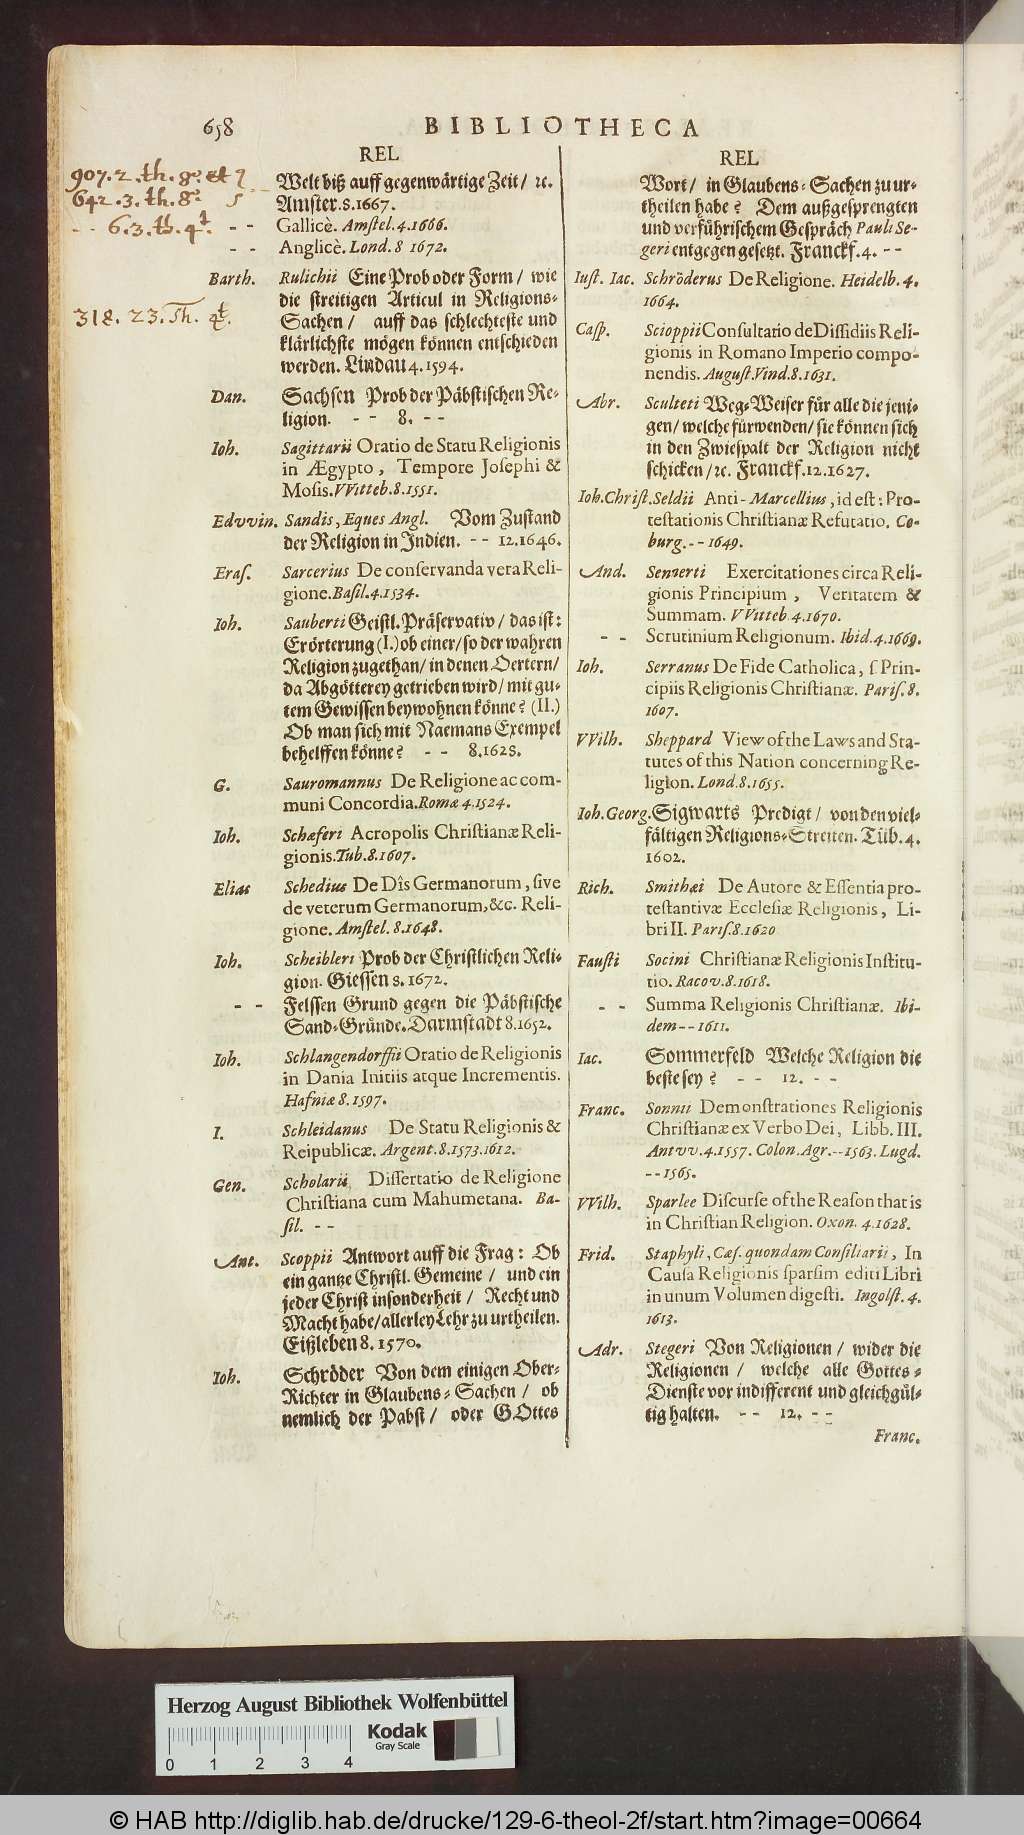 658
BIBLIOTHECA
REL
907.2.th.8o. et 7
642.3.th.8o. 5
- - 6.3.th.4t.
318. 23. Th. 4t.
Welt biß auff gegenwärtige Zeit / ꝛc.
Amster. 8. 1667.
- - Gallicè. Amstel. 4. 1666.
- - Anglicè. Lond. 8 1672.
Barth. Rulichii Eine Prob oder Form / wie
die streitigen Articul in Religions-
Sachen / auff das schlechteste und
klärlichste mögen können entschieden
werden. Lindau 4. 1594.
Dan. Sachsen Prob der Päbstischen Re-
ligion. - - 8. - -
Ioh. Sagittarii Oratio de Statu Religionis
in Ægypto, Tempore Josephi &
Mosis. VVitteb. 8. 1551.
Edvvin. Sandis, Eques Angl. Vom Zustand
der Religion in Indien. - - 12. 1646.
Eraſ. Sarcerius De conſervanda vera Reli-
gione. Baſil. 4. 1534.
Ioh. Sauberti Geistl. Präservativ / das ist:
Erörterung (I.) ob einer / so der wahren
Religion zugethan / in denen Oertern /
da Abgötterey getrieben wird / mit gu-
tem Gewissen beywohnen könne? (II.)
Ob man sich mit Naemans Exempel
behelffen könne? - - 8. 1628.
G. Sauromannus De Religione ac com-
muni Concordia. Romæ 4. 1524.
Ioh. Schæferi Acropolis Chriſtianæ Reli-
gionis. Tub. 8. 1607.
Elias Schedius De Dîs Germanorum, ſive
de veterum Germanorum, &c. Reli-
gione. Amſtel. 8. 1648.
Ioh. Scheibleri Prob der Christlichen Reli-
gion. Giessen 8. 1672.
- - Felssen Grund gegen die Päbstische
Sand-Gründe. Darmstadt 8. 1652.
Ioh. Schlangendorffii Oratio de Religionis
in Dania Initiis atque Incrementis.
Hafniæ 8. 1597.
I. Schleidanus De Statu Religionis &
Reipublicæ. Argent. 8. 1573. 1612.
Gen. Scholarii Diſſertatio de Religione
Chriſtiana cum Mahumetana. Ba-
ſil. - -
Ant. Scoppii Antwort auff die Frag: Ob
ein gantze Christl. Gemeine / und ein
jeder Christ insonderheit / Recht und
Macht habe / allerley Lehr zu urtheilen.
Eißleben 8. 1570.
Ioh. Schröder Von dem einigen Ober-
Richter in Glaubens-Sachen / ob
nemlich der Pabst / oder GOttes
REL
Wort / in Glaubens-Sachen zu ur-
theilen habe? Dem außgesprengten
und verführischem Gespräch Pauli Se-
geri entgegen gesetzt. Franckf. 4. - -
Iuſt. Iac. Schröderus De Religione. Heidelb. 4.
1664.
Caſp. Scioppii Conſultatio de Diſſidiis Reli-
gionis in Romano Imperio compo-
nendis. Auguſt. Vind. 8. 1631.
Abr. Sculteti Weg-Weiser für alle die jeni-
gen / welche fürwenden / sie können sich
in den Zwiespalt der Religion nicht
schicken / ꝛc. Franckf. 12. 1627.
Ioh. Chriſt. Seldii Anti-Marcellius, id eſt: Pro-
teſtationis Chriſtianæ Refutatio. Co-
burg. - - 1649.
And. Sennerti Exercitationes circa Reli-
gionis Principium, Veritatem &
Summam. VVitteb. 4. 1670.
- - Scrutinium Religionum. Ibid. 4. 1669.
Ioh. Serranus De Fide Catholica, ſ. Prin-
cipiis Religionis Chriſtianæ. Pariſ. 8.
1607.
VVilh. Sheppard View of the Laws and Sta-
tutes of this Nation concerning Re-
ligion. Lond. 8. 1655.
Ioh. Georg. Sigwarts Predigt / von den viel-
fältigen Religions-Streiten. Tüb. 4.
1602.
Rich. Smithæi De Autore & Eſſentia pro-
teſtantivæ Eccleſiæ Religionis, Li-
bri II. Pariſ. 8. 1620
Fauſti Socini Chriſtianæ Religionis Inſtitu-
tio. Racov. 8. 1618.
- - Summa Religionis Chriſtianæ. Ibi-
dem - - 1611.
Iac. Sommerfeld Welche Religion die
beste sey? - - 12. - -
Franc. Sonnii Demonſtrationes Religionis
Chriſtianæ ex Verbo Dei, Libb. III.
Antvv. 4. 1557. Colon. Agr. - - 1563. Lugd.
- - 1565.
VVilh. Sparlee Diſcurſe of the Reaſon that is
in Chriſtian Religion. Oxon. 4. 1628.
Frid. Staphyli, Cæſ. quondam Conſiliarii, In
Cauſa Religionis ſparſim editi Libri
in unum Volumen digeſti. Ingolſt. 4.
1613.
Adr. Stegeri Von Religionen / wider die
Religionen / welche alle Gottes-
Dienste vor indifferent und gleichgül-
tig halten. - - 12. - -
Franc.
Herzog August Bibliothek Wolfenbüttel
Kodak
Gray Scale
0 1 2 3 4
© HAB http://diglib.hab.de/drucke/129-6-theol-2f/start.htm?image=00664